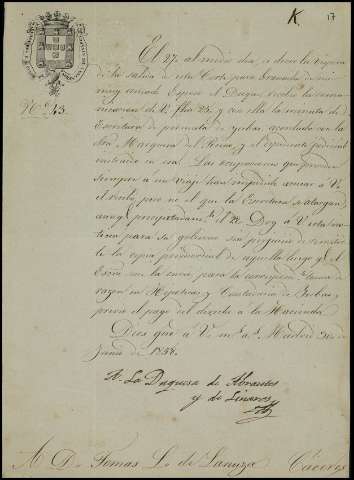 K. 17
Nº 43.
El 27, al medio dia, es decir la vispera
de la salida de esta Corte para Granada de mi
muy amado Esposo el Duque, recibí la comu-
nicacion de V. fha 25, y con ella la minuta de
Escritura de permuta de yerbas, acordada con la
Sra. Marquesa del Reino, y el espediente judicial
instruido en esa. Las ocupaciones que preceden
siempre á un viaje han impedido acusar á V.
el recibo, pero no el que la Escritura se otorgara,
el 28. Doy á V. esta no-
ticia para su gobierno sin perjuicio de remitir-
le la copia primordial de aquella luego q.e el
Escno. me la envie, para la correspond.te toma de
razon en Hipotecas y Contaduria de Yerbas,
previo el pago del derecho á la Hacienda.
Dios gue. á V. m.s a.s Madrid 30 de
Junio de 1858.
La Duquesa de Abrantes
y de Linares
A D. Tomas L. de Lanuza Cáceres